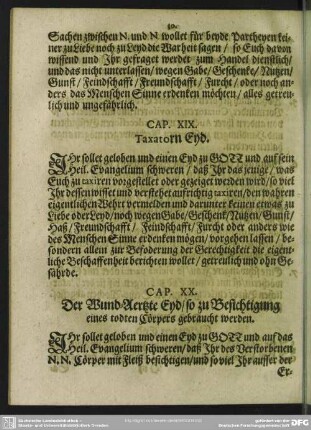 40.
Sachen zwischen N. und N. wollet für beyde Partheyen kei-
ner zu Liebe noch zu Leyd die Warheit sagen / so Euch davon
wissend und Ihr gefraget werdet zum Handel dienstlich /
und das nicht unterlassen / wegen Gabe / Geschencke / Nutzen /
Gunst / Feindschafft / Freundschafft / Furcht / oder noch an-
ders das Menschen Sinne erdencken möchten / alles getreu-
lich und ungefährlich.
CAP. XIX.
Taxatorn Eyd.
IHr sollet geloben und einen Eyd zu GOTT und auf sein
Heil. Evangelium schweren / daß Ihr das jenige / was
Euch zu taxiren vorgestellet oder gezeiget werden wird / so viel
Ihr dessen wisset und verstehet auffrichtig taxiren / den wahren
eigentlichen Wehrt vermelden und darunter keinen etwas zu
Liebe oder Leyd / noch wegen Gabe / Geschenck / Nutzen / Gunst /
Haß / Freundschafft / Feindschafft / Furcht oder anders wie
des Menschen Sinne erdencken mögen / vorgehen lassen / be-
sondern allein zur Befoderung der Gerechtigkeit die eigent-
liche Beschaffenheit berichten wollet / getreulich und ohn Ge-
fährde.
CAP. XX.
Der Wund-Aertzte Eyd / so zu Besichtigung
eines todten Cörpers gebraucht werden.
IHr sollet geloben und einen Eyd zu GOTT und auf das
Heil. Evangelium schweren / daß Ihr des Verstorbenen
N. N. Cörper mit Fleiß besichtigen / und so viel Ihr ausser der
Er-